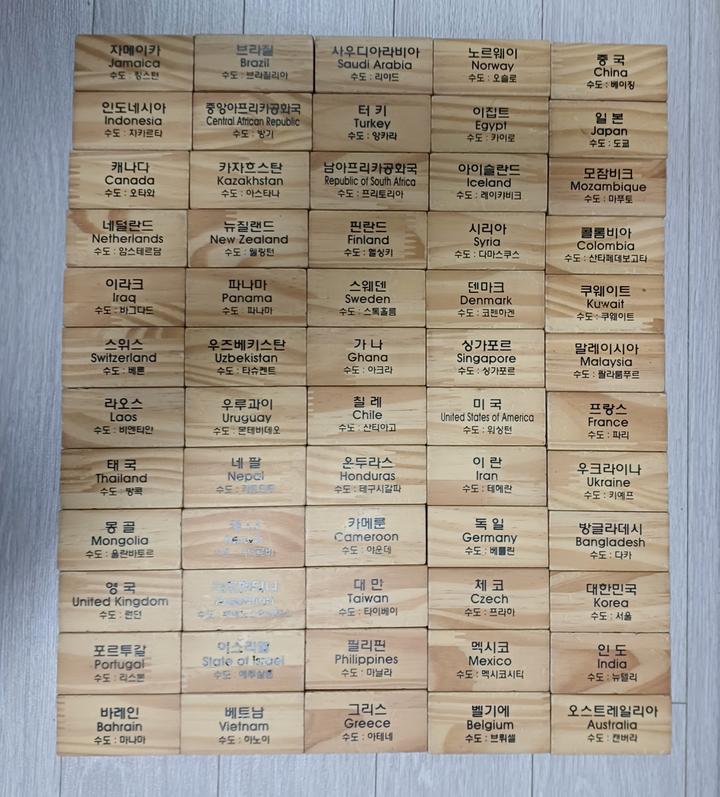 자메이카
Jamaica
수도 : 킹스턴
브라질
Brazil
수도 : 브라질리아
사우디아라비아
Saudi Arabia
수도 : 리야드
노르웨이
Norway
수도 : 오슬로
중 국
China
수도 : 베이징
인도네시아
Indonesia
수도 : 자카르타
중앙아프리카공화국
Central African Republic
수도 : 방기
터 키
Turkey
수도 : 앙카라
이집트
Egypt
수도 : 카이로
일 본
Japan
수도 : 도쿄
캐나다
Canada
수도 : 오타와
카자흐스탄
Kazakhstan
수도 : 아스타나
남아프리카공화국
Republic of South Africa
수도 : 프리토리아
아이슬란드
Iceland
수도 : 레이캬비크
모잠비크
Mozambique
수도 : 마푸토
네덜란드
Netherlands
수도 : 암스테르담
뉴질랜드
New Zealand
수도 : 웰링턴
핀란드
Finland
수도 : 헬싱키
시리아
Syria
수도 : 다마스쿠스
콜롬비아
Colombia
수도 : 산타페데보고타
이라크
Iraq
수도 : 바그다드
파나마
Panama
수도 : 파나마
스웨덴
Sweden
수도 : 스톡홀름
덴마크
Denmark
수도 : 코펜하겐
쿠웨이트
Kuwait
수도 : 쿠웨이트
스위스
Switzerland
수도 : 베른
우즈베키스탄
Uzbekistan
수도 : 타슈켄트
가 나
Ghana
수도 : 아크라
싱가포르
Singapore
수도 : 싱가포르
말레이시아
Malaysia
수도 : 콸라룸푸르
라오스
Laos
수도 : 비엔티안
우루과이
Uruguay
수도 : 몬테비데오
칠 레
Chile
수도 : 산티아고
미 국
United States of America
수도 : 워싱턴
프랑스
France
수도 : 파리
태 국
Thailand
수도 : 방콕
네 팔
Nepal
수도 :
온두라스
Honduras
수도 : 테구시갈파
이 란
Iran
수도 : 테헤란
우크라이나
Ukraine
수도 : 키예프
몽 골
Mongolia
수도 : 울란바토르
카메룬
Cameroon
수도 : 야운데
독 일
Germany
수도 : 베를린
방글라데시
Bangladesh
수도 : 다카
영 국
United Kingdom
수도 : 런던
대 만
Taiwan
수도 : 타이베이
체 코
Czech
수도 : 프라하
대한민국
Korea
수도 : 서울
포르투갈
Portugal
수도 : 리스본
이스라엘
State of Israel
수도 : 예루살렘
필리핀
Philippines
수도 : 마닐라
멕시코
Mexico
수도 : 멕시코시티
인 도
India
수도 : 뉴델리
바레인
Bahrain
수도 : 마나마
베트남
Vietnam
수도 : 하노이
그리스
Greece
수도 : 아테네
벨기에
Belgium
수도 : 브뤼셀
오스트레일리아
Australia
수도 : 캔버라